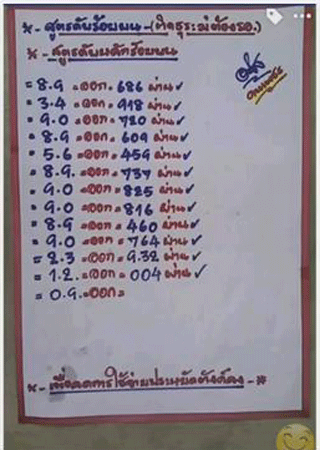 ※-สูตรดับร้อยบน-(ติดธุระไม่ต้องรอ.)
※-สูตรดับบนหลักร้อยบน
= 8.9 =ออก= 686 ผ่าน✓
= 3.4 =ออก= 918 ผ่าน✓
= 9.0 =ออก= 720 ผ่าน✓
= 8.9 =ออก= 609 ผ่าน✓
= 5.6 =ออก= 459 ผ่าน✓
= 8.9. =ออก= 737 ผ่าน✓
= 9.0 =ออก= 825 ผ่าน✓
= 9.0 =ออก= 816 ผ่าน✓
= 8.9 =ออก= 460 ผ่าน✓
= 9.0 =ออก= 764 ผ่าน✓
= 2.3 =ออก= 932 ผ่าน✓
= 1.2. =ออก= 004 ผ่าน✓
= 0.9. =ออก=
※-เพื่อลดการใช้จ่ายประหยัดตังค์ลง-※